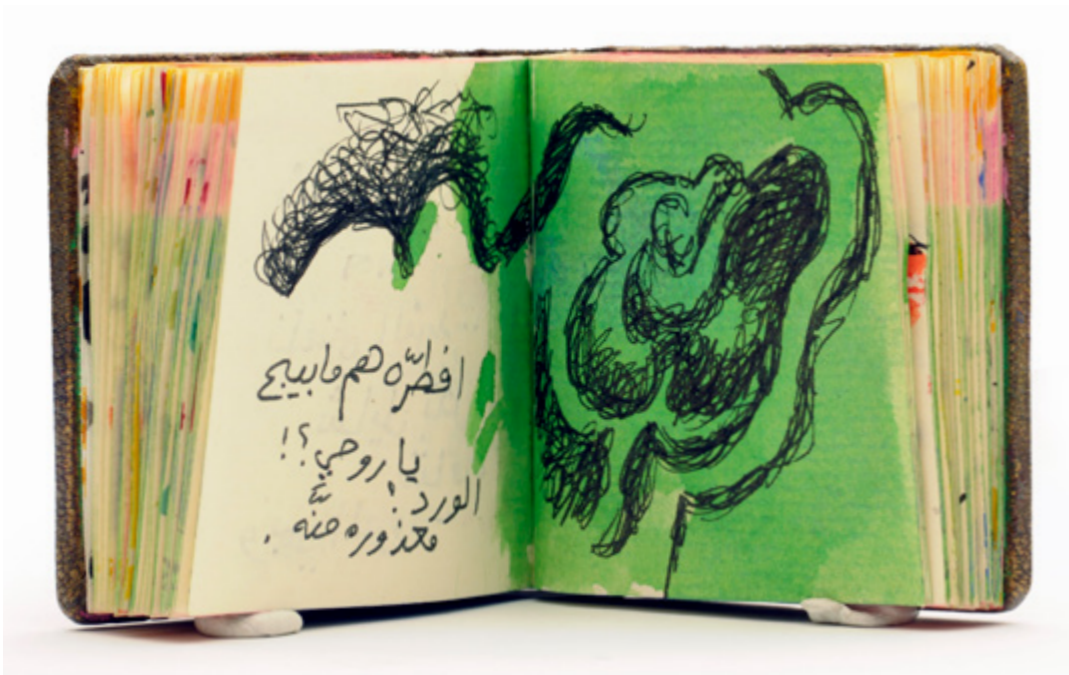 افصرّه هم ما يبيع
يا روحي؟!
الورد!
معذوره منّه.